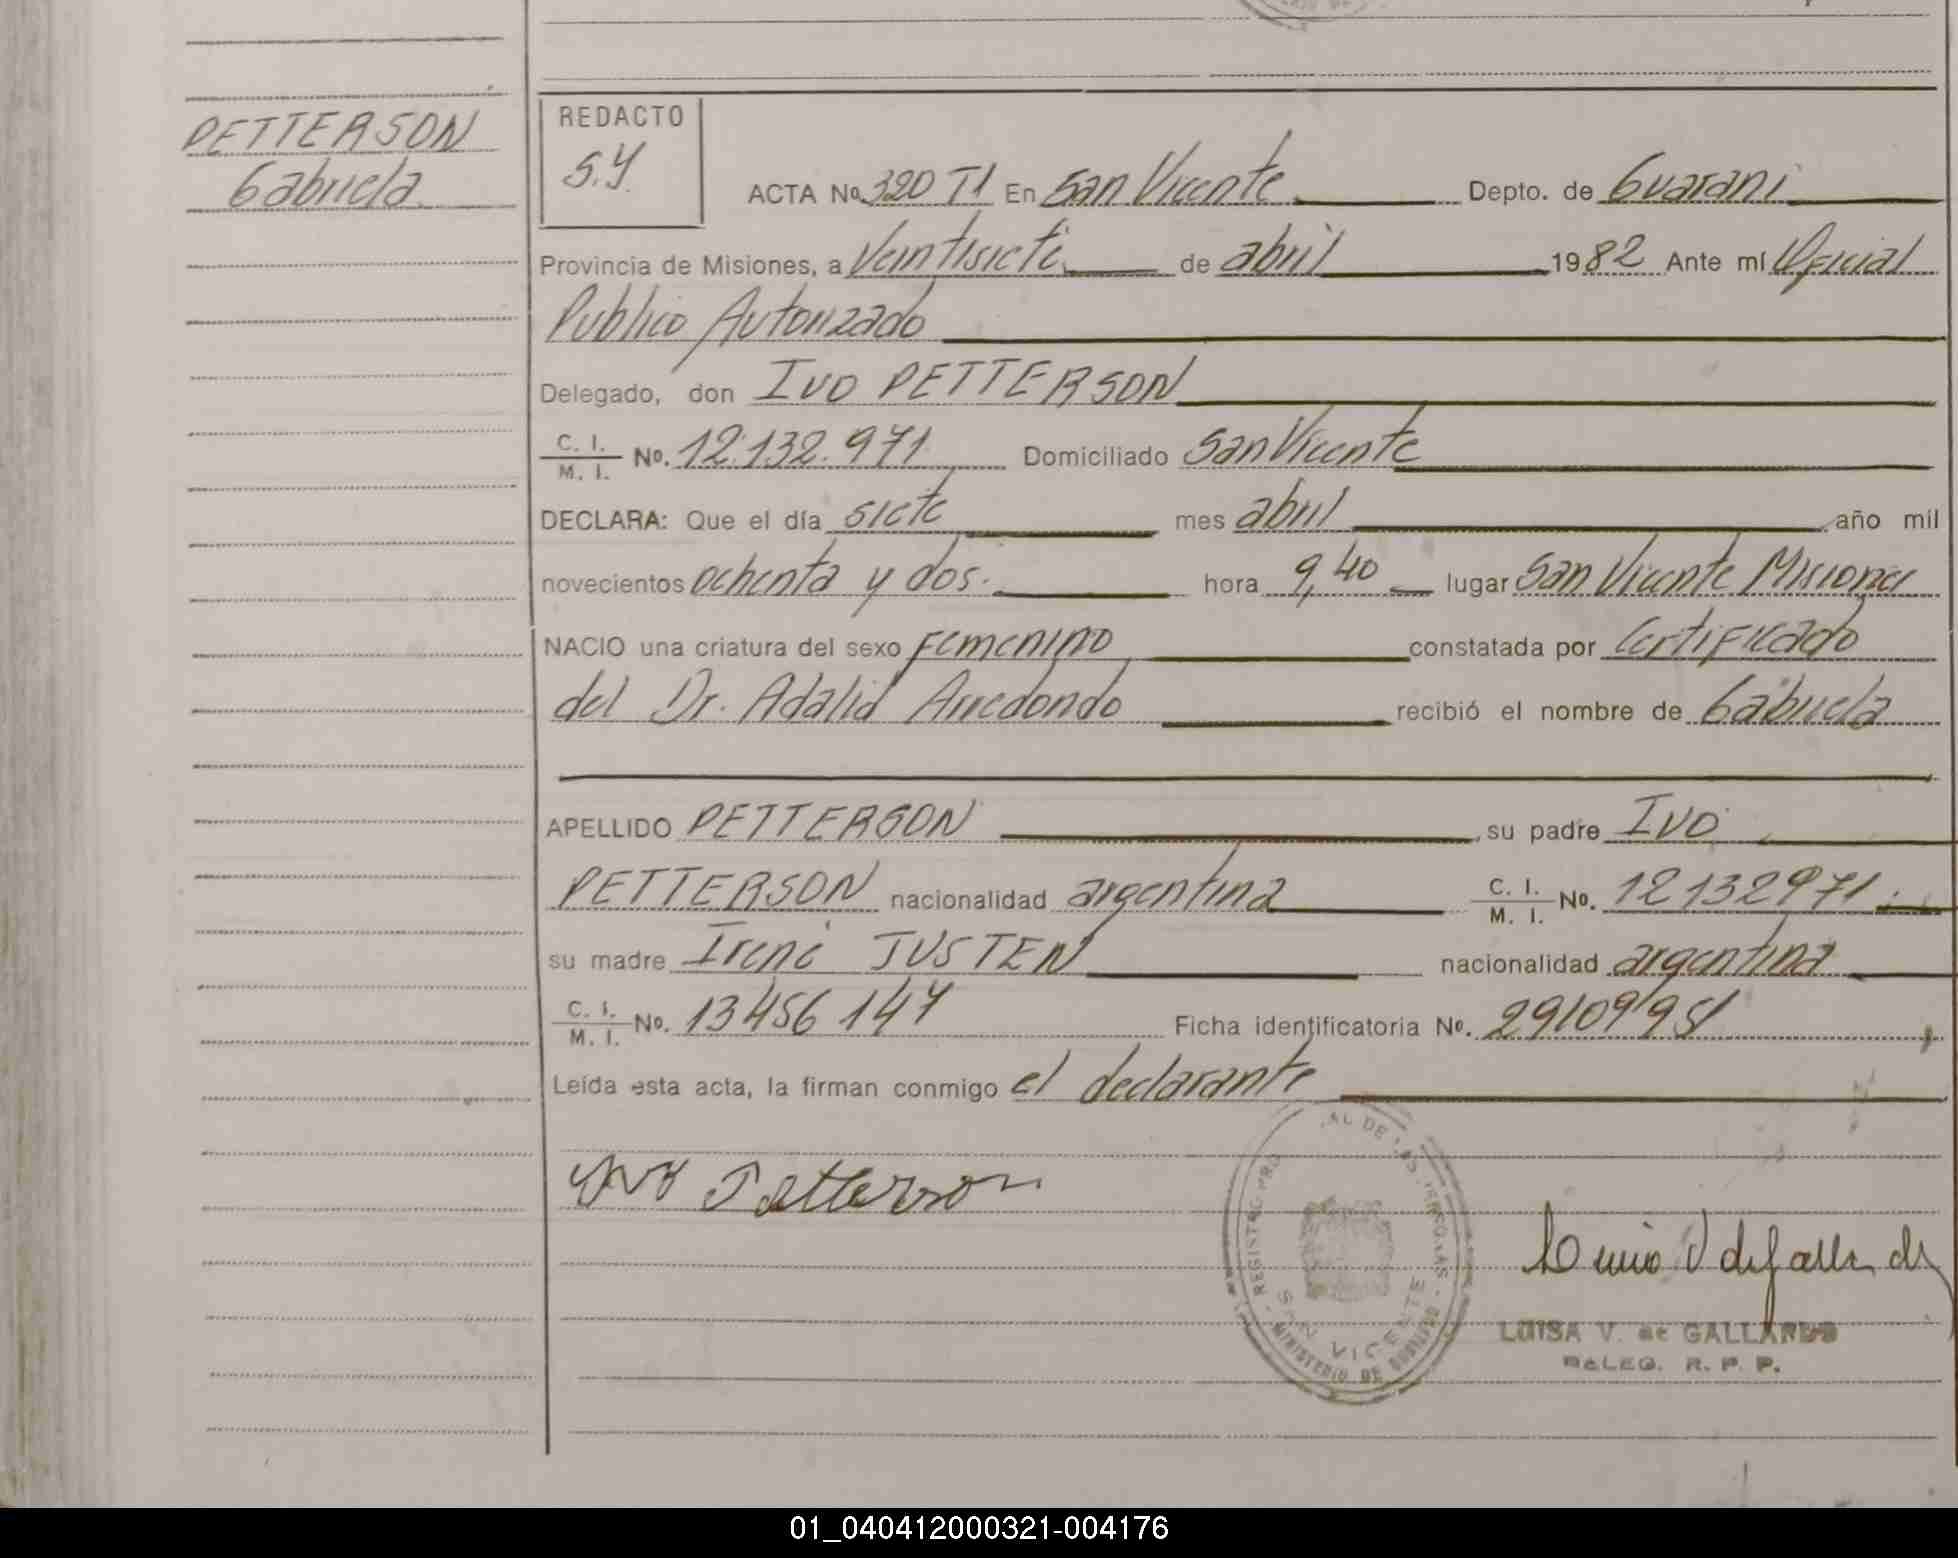 PETTERSON
Gabriela
REDACTO
S.Y.
ACTA Nº 320 T1 En San Vicente Depto. de Guaraní
Provincia de Misiones, a Veintisiete de abril 1982 Ante mí Oficial
Publico Autorizado
Delegado, don Ivo PETTERSON
C. I. / M. I. Nº. 12.132.971. Domiciliado San Vicente
DECLARA: Que el día siete mes abril año mil
novecientos ochenta y dos. hora 9,40 lugar San Vicente Misiones
NACIO una criatura del sexo Femenino constatada por Certificado
del Dr. Adalid Arredondo recibió el nombre de Gabriela
APELLIDO PETTERSON su padre Ivo
PETTERSON nacionalidad argentina C. I. / M. I. Nº. 12132971.
su madre Irene JUSTEN nacionalidad argentina
C. I. / M. I. Nº. 13456147 Ficha identificatoria Nº. 29109951
Leída esta acta, la firman conmigo el declarante
Ivo Petterson
REGISTRO PRO AL DE LAS PERSONAS
SAN VICENTE
MINISTERIO DE GOBIERNO
LUISA V. de GALLARDO
DELEG. R. P. P.
01_040412000321-004176